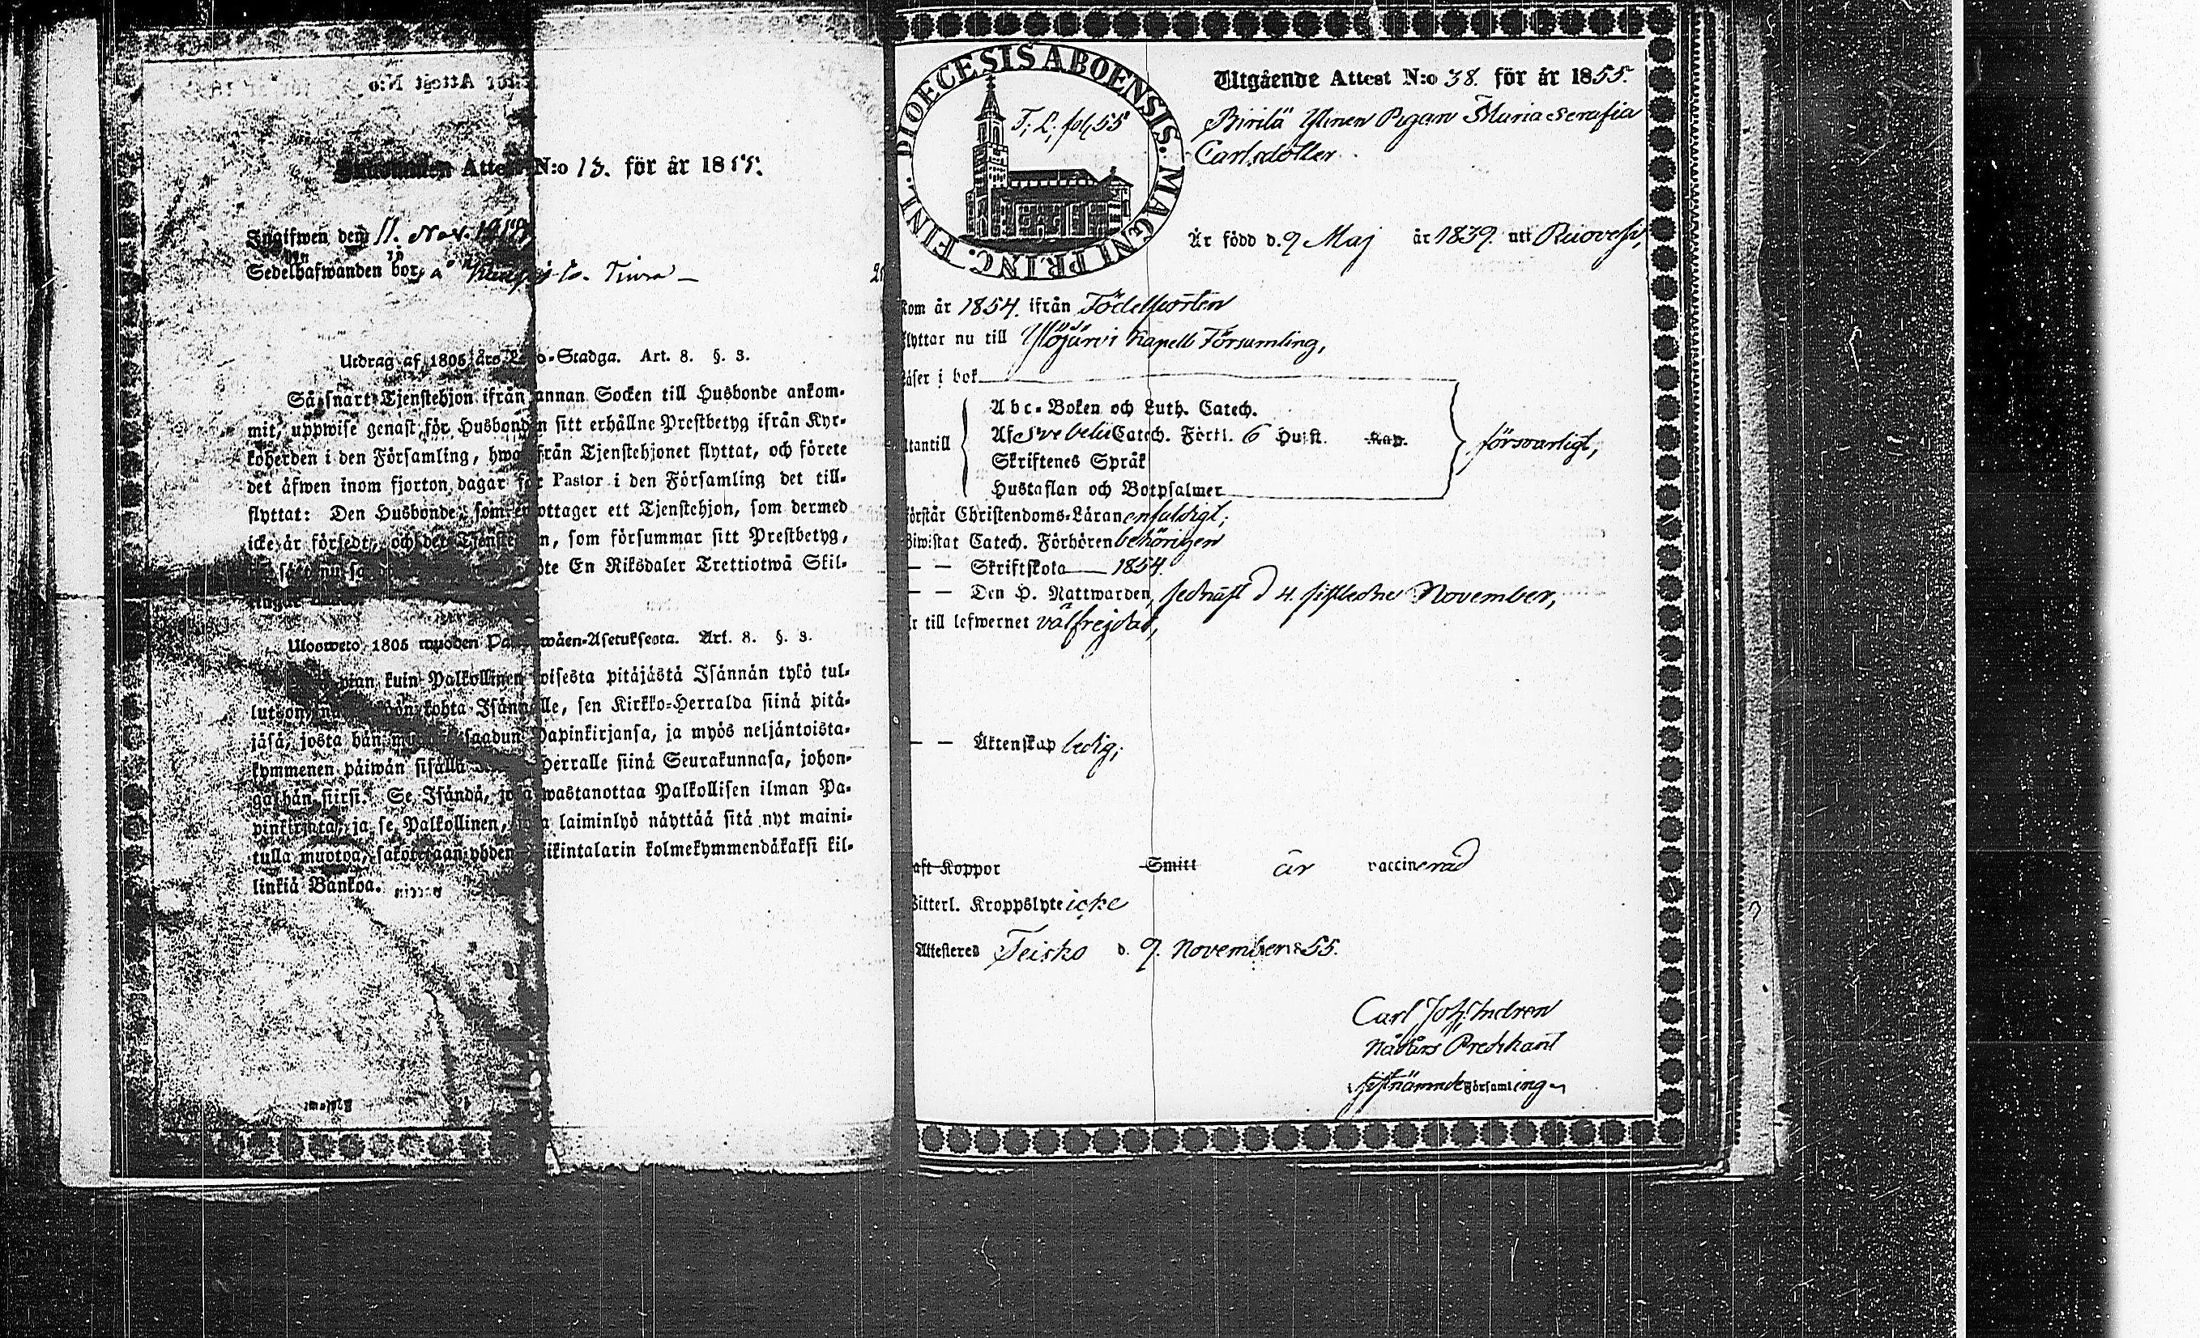 Attest N:o 13. för år 1855.
Ingifwen den 11. Nov. 1855
Sedelhafwanden bor, å
Utdrag af 1805 års Lego-Stadga. Art. 8. §. 3.
Så snart Tjenstehjon ifrån annan Socken till Husbonde ankom-
mit, uppwise genast för Husbonden sitt erhållne Prestbetyg ifrån Kyr-
koherden i den Församling, hwarifrån Tjenstehjonet flyttat, och förete
det äfwen inom fjorton dagar för Pastor i den Församling det till-
flyttat: Den Husbonde, som emottager ett Tjenstehjon, som dermed
icke är försedt, och det Tjenstehjon, som försummar sitt Prestbetyg,
böte En Riksdaler Trettiotwå Skil-
Ulosweto 1805 wuoden Palkkawäen-Asetuksesta. Art. 8. §. 3.
pian kuin Palkollinen toisesta pitäjästä Isännän tykö tul-
lut on, kohta Isännälle, sen Kirkko-Herralda siinä pitä-
jäsä, josta hän saadun Papinkirjansa, ja myös neljäntoista-
kymmenen päiwän sisällä Herralle siinä Seurakunnasa, johon-
ga hän siirsi. Se Isändä, joka wastanottaa Palkollisen ilman Pa-
pinkirjata, ja se Palkollinen, joka laiminlyö näyttää sitä nyt maini-
tulla muotoa, sakotetaan yhden Riikintalarin kolmekymmendäkaksi kil-
linkiä Bankoa.
DIOECESIS ABOENSIS. MAGNI PRINC. FINL.
T. L. fol. 55
Utgående Attest N:o 38. för år 1855.
Birilä Ylinen Pigan Maria Serafia
Carlsdotter
Är född d. 9 Maj år 1839. uti Ruovesi,
kom år 1854. ifrån Födelseorten
flyttar nu till Ylöjärvi Kapell Församling,
Läser i bok
Abc-Boken och Luth. Catech.
Af Svebelii Catech. Förkl. 6 Huf.st. Kap.
utantill försvarligt,
Skriftenes Språk
Hustaflan och Botpsalmer
Förstår Christendoms-Läran enfaldigt;
Biwistat Catech. Förhören behörigen
— — Skriftskola 1854.
— — Den H. Nattwarden, sednast d 4. sistledne November,
Är till lefwernet välfrejdad,
— — Äktenskap ledig;
haft Koppor Smitt är vaccinerad
Witterl. Kroppslyte icke
Attesteras Teisko d. 9. November 1855.
Carl Joh. Indren
Nådårs Predikant
sistnämnde Församling